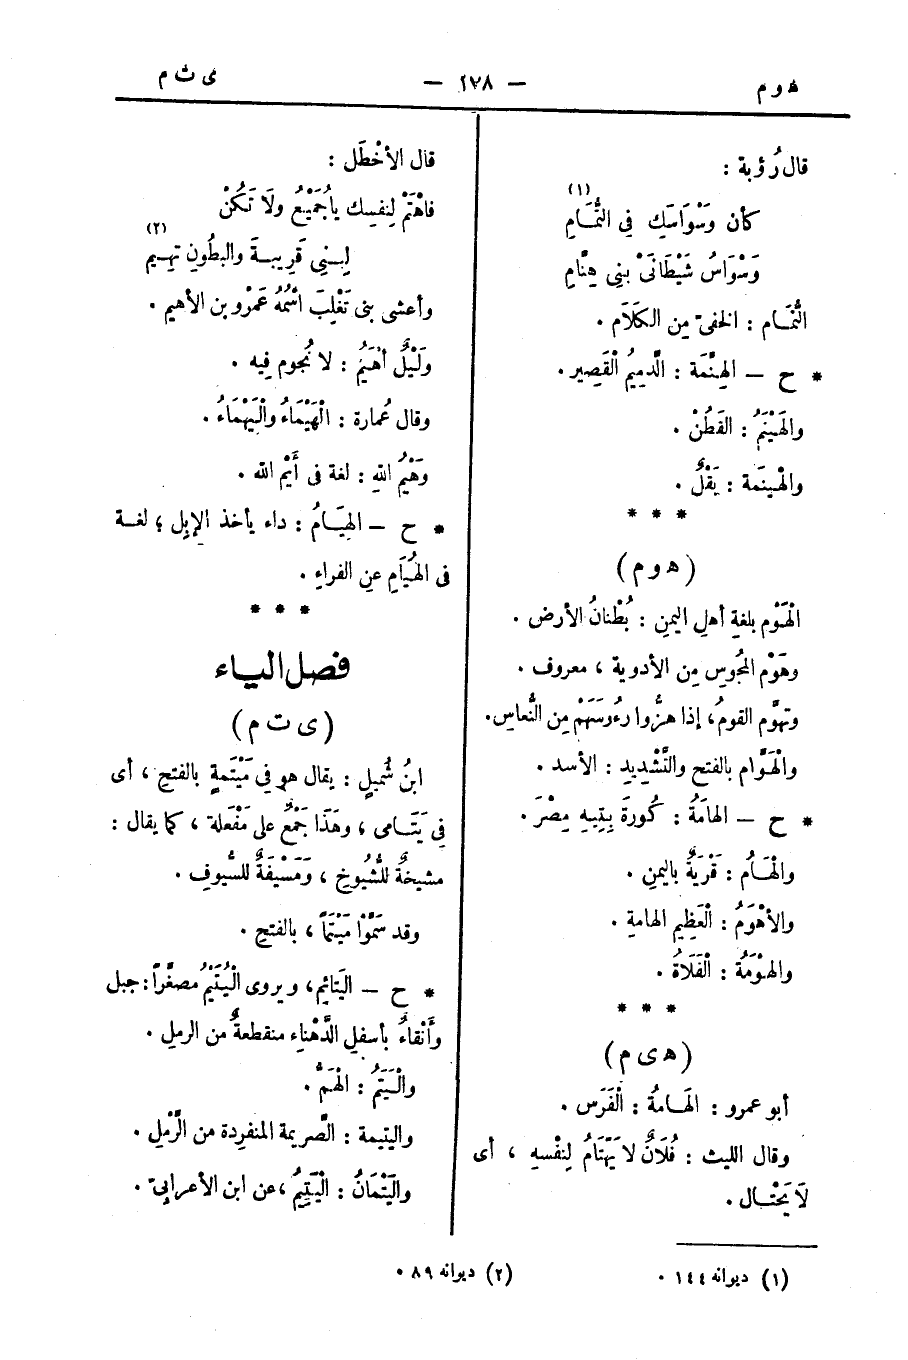 هوم
— ١٧٨ —
ى ث م
قال رُؤبة :
كأن وَسْوَاسَك فى النُّمَّامِ (١)
وَسْوَاسُ شَيْطَانَىْ بنى هِنَّامِ
النُّمَّام : الخفىّ مِن الكَلَام .
* ح — الهِنَّمَة : الدَّمِيمُ الْقَصِير .
والهَيْنَمُ : القَطُنْ .
والهْينَمة : بَقْلٌ .
* * *
( ه و م )
الْهَوْم بلغةِ أهلِ اليمنِ : بُطْنانُ الأرض .
وهَوْم المجُوسِ مِن الأدوية ، معروف .
وتهوَّم القومُ، إذا هزُّوا رءُوسَهَمْ مِن النُّعاسِ.
والْهَوَّام بالفتح والتَّشْديدِ : الأسد .
* ح — الهامَةُ : كُورَةَ بِتِيهِ مِصْرَ .
والْهَامُ : قَرْيَةٌ باليمنِ .
والأهْوَمُ : الْعَظِيم الهامةِ .
والهوْمَةُ : الْفَلَاةُ .
* * *
( ه ى م )
أبو عمرو : الَهامةُ : الْفَرَس .
وقال الليث : فُلَانٌ لا يَهْتَامُ لِنفْسهِ ، أى
لَا يَحْتَال .
قال الأخْطَل :
فاهْتَمْ لِنفسِك ياُجُمَيْعُ ولَا تَكُنْ
لِبنِى قَرِيبةَ والبطُونِ تهِيم (٢)
وأعشى بنى تَغْلِبَ اسْمُهُ عَمْرُو بن الأهيم .
وَلَيْلٌ أَهْيَمُ : لا نُجوم فِيه .
وقال عُمارة : الْهَيْمَاءُ والْيَهْمَاءُ .
وَهَيْمُ اللهِ : لغة فى أَيْم الله .
* ح — الهِيَامُ : داء يأخذ الإبل ؛ لغة
فى الهُيَامِ عنِ الفراءِ .
* * *
فصل الياء
( ى ت م )
ابنُ شُميلٍ : يقال هو فى مَيْتَمةٍ بالفتحِ ، أى
فى يَتَامى ، وهَذَا جَمْعٌ على مَفْعَلة ، كما يقال :
مشيخةٌ للشُّيُوخِ ، وَمَسْيَفَةٌ للسُّيوفِ .
وقد سَمَّوْا مَيْتَمًا ، بالفتحِ .
* ح — اليَتَائِم، ويروى الْيُتَيِّمُ مصغَّراً : جبل
وأَنْقاءٌ بأسفلِ الدَّهْناءِ منقطعةٌ من الرملِ .
والْيَتَمُ : الْهَمُّ .
واليتيمة : الصَّريمة المنفرِدة من الرَّملِ .
والْيَتْمَانُ : الْيَتِيمُ ،عن ابن الأعرابىّ .
(١) ديوانه ١٤٤ .
(٢) ديوانه ٨٩ .